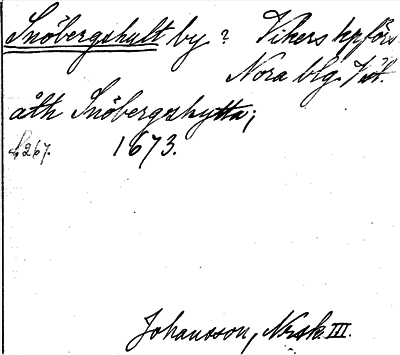 Snöbergshult by? Vikers kpförs.
Nora blg. Vstl.
åth Snöbergshytta;
s. 267. 1673.
Johansson, Norask. III.